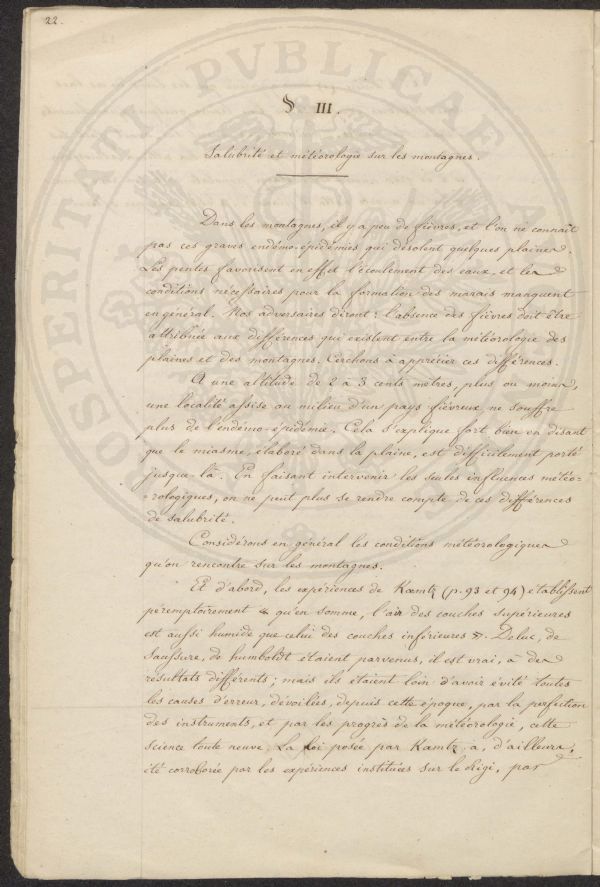 22.
PROSPERITATI PUBLICAE
§ III.
Salubrité et météorologie sur les montagnes.
Dans les montagnes, il y a peu de fièvres, et l'on ne connaît
pas ces graves endémo-épidémies qui désolent quelques plaines.
Les pentes favorisent en effet l'écoulement des eaux, et les
conditions nécessaires pour la formation des marais manquent
en général. Nos adversaires diront : l'absence des fièvres doit être
attribuée aux différences qui existent entre la météorologie des
plaines et des montagnes. Cerchons à apprécier ces différences.
A une altitude de 2 à 3 cents mètres, plus ou moins,
une localité assise au milieu d'un pays fiévreux ne souffre
plus de l'endémo-épidémie. Cela s'explique fort bien en disant
que le miasme, élaboré dans la plaine, est difficilement porté
jusque-là. En faisant intervenir les seules influences météo-
-rologiques, on ne peut plus se rendre compte de ces différences
de salubrité.
Considérons en général les conditions météorologiques
qu'on rencontre sur les montagnes.
Et d'abord, les expériences de Kæmtz (p. 93 et 94) établissent
peremptoirement qu'en somme, l'air des couches supérieures
est aussi humide que celui des couches inférieures. Deluc, de
Saussure, de humboldt étaient parvenus, il est vrai, à des
résultats différents ; mais ils étaient loin d'avoir évité toutes
les causes d'erreur, dévoilées, depuis cette époque, par la perfection
des instruments, et par les progrès de la météorologie, cette
science toute neuve. La loi posée par Kæmtz a, d'ailleurs,
été corroborée par les expériences instituées sur le Rigi, par